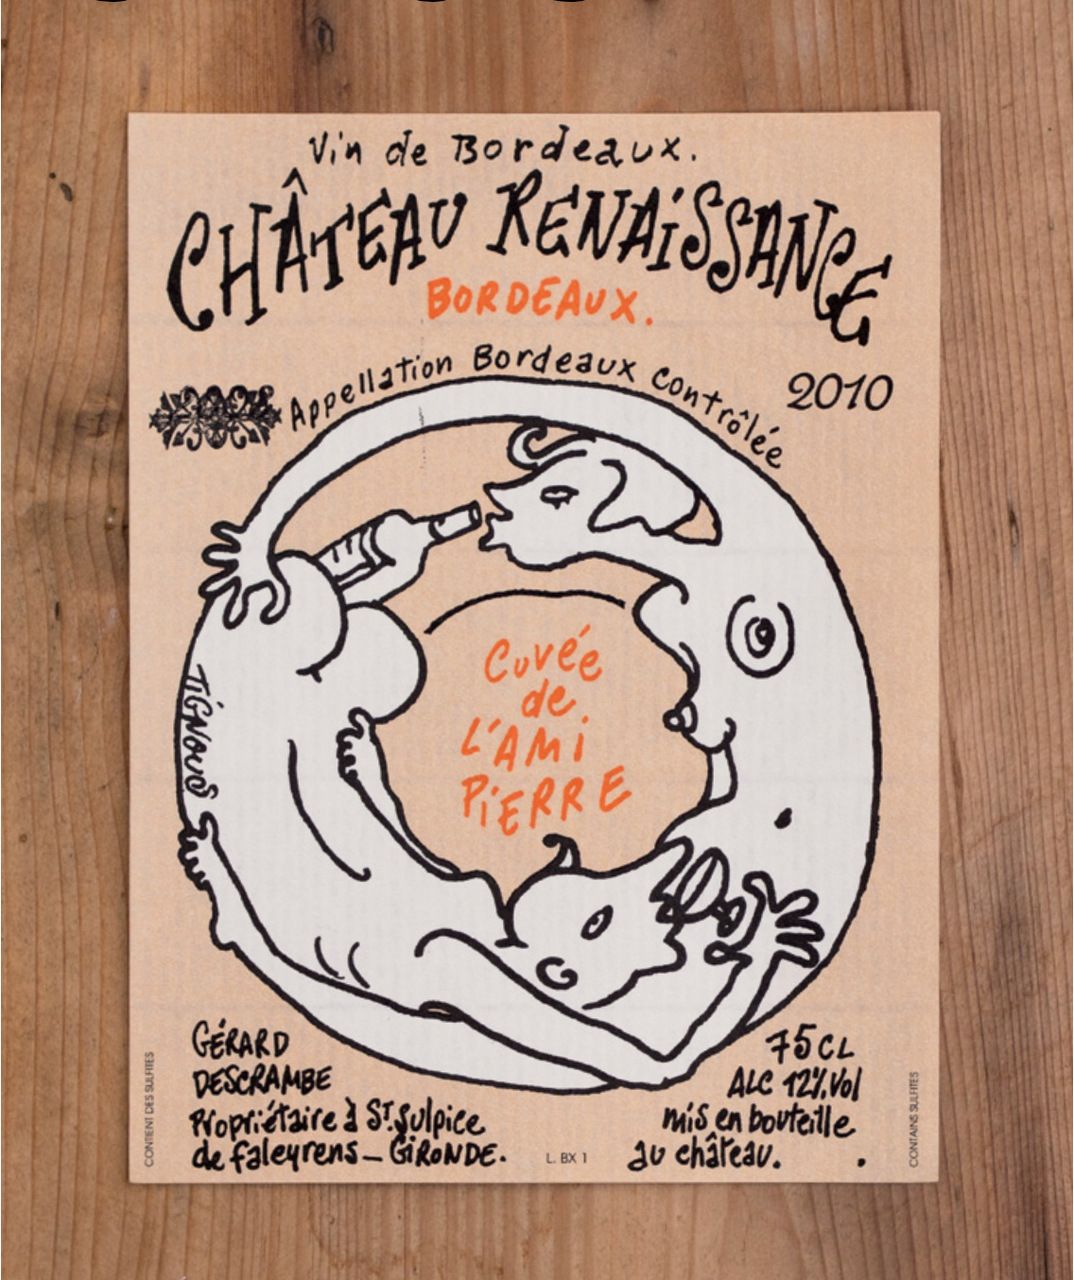 Vin de Bordeaux.
CHÂTEAU RENAiSSANCE
BORDEAUX.
Appellation Bordeaux contrôlée
2010
Cuvée
de
L'AMi
PiERRE
TiGNOUS
GÉRARD
DESCRAMBE
Propriétaire à ST. Sulpice
de faleyrens _ GiRONDE.
75 CL
ALC 12%.Vol
mis en bouteille
au château.
L. BX 1
CONTIENT DES SULFITES
CONTAINS SULFITES